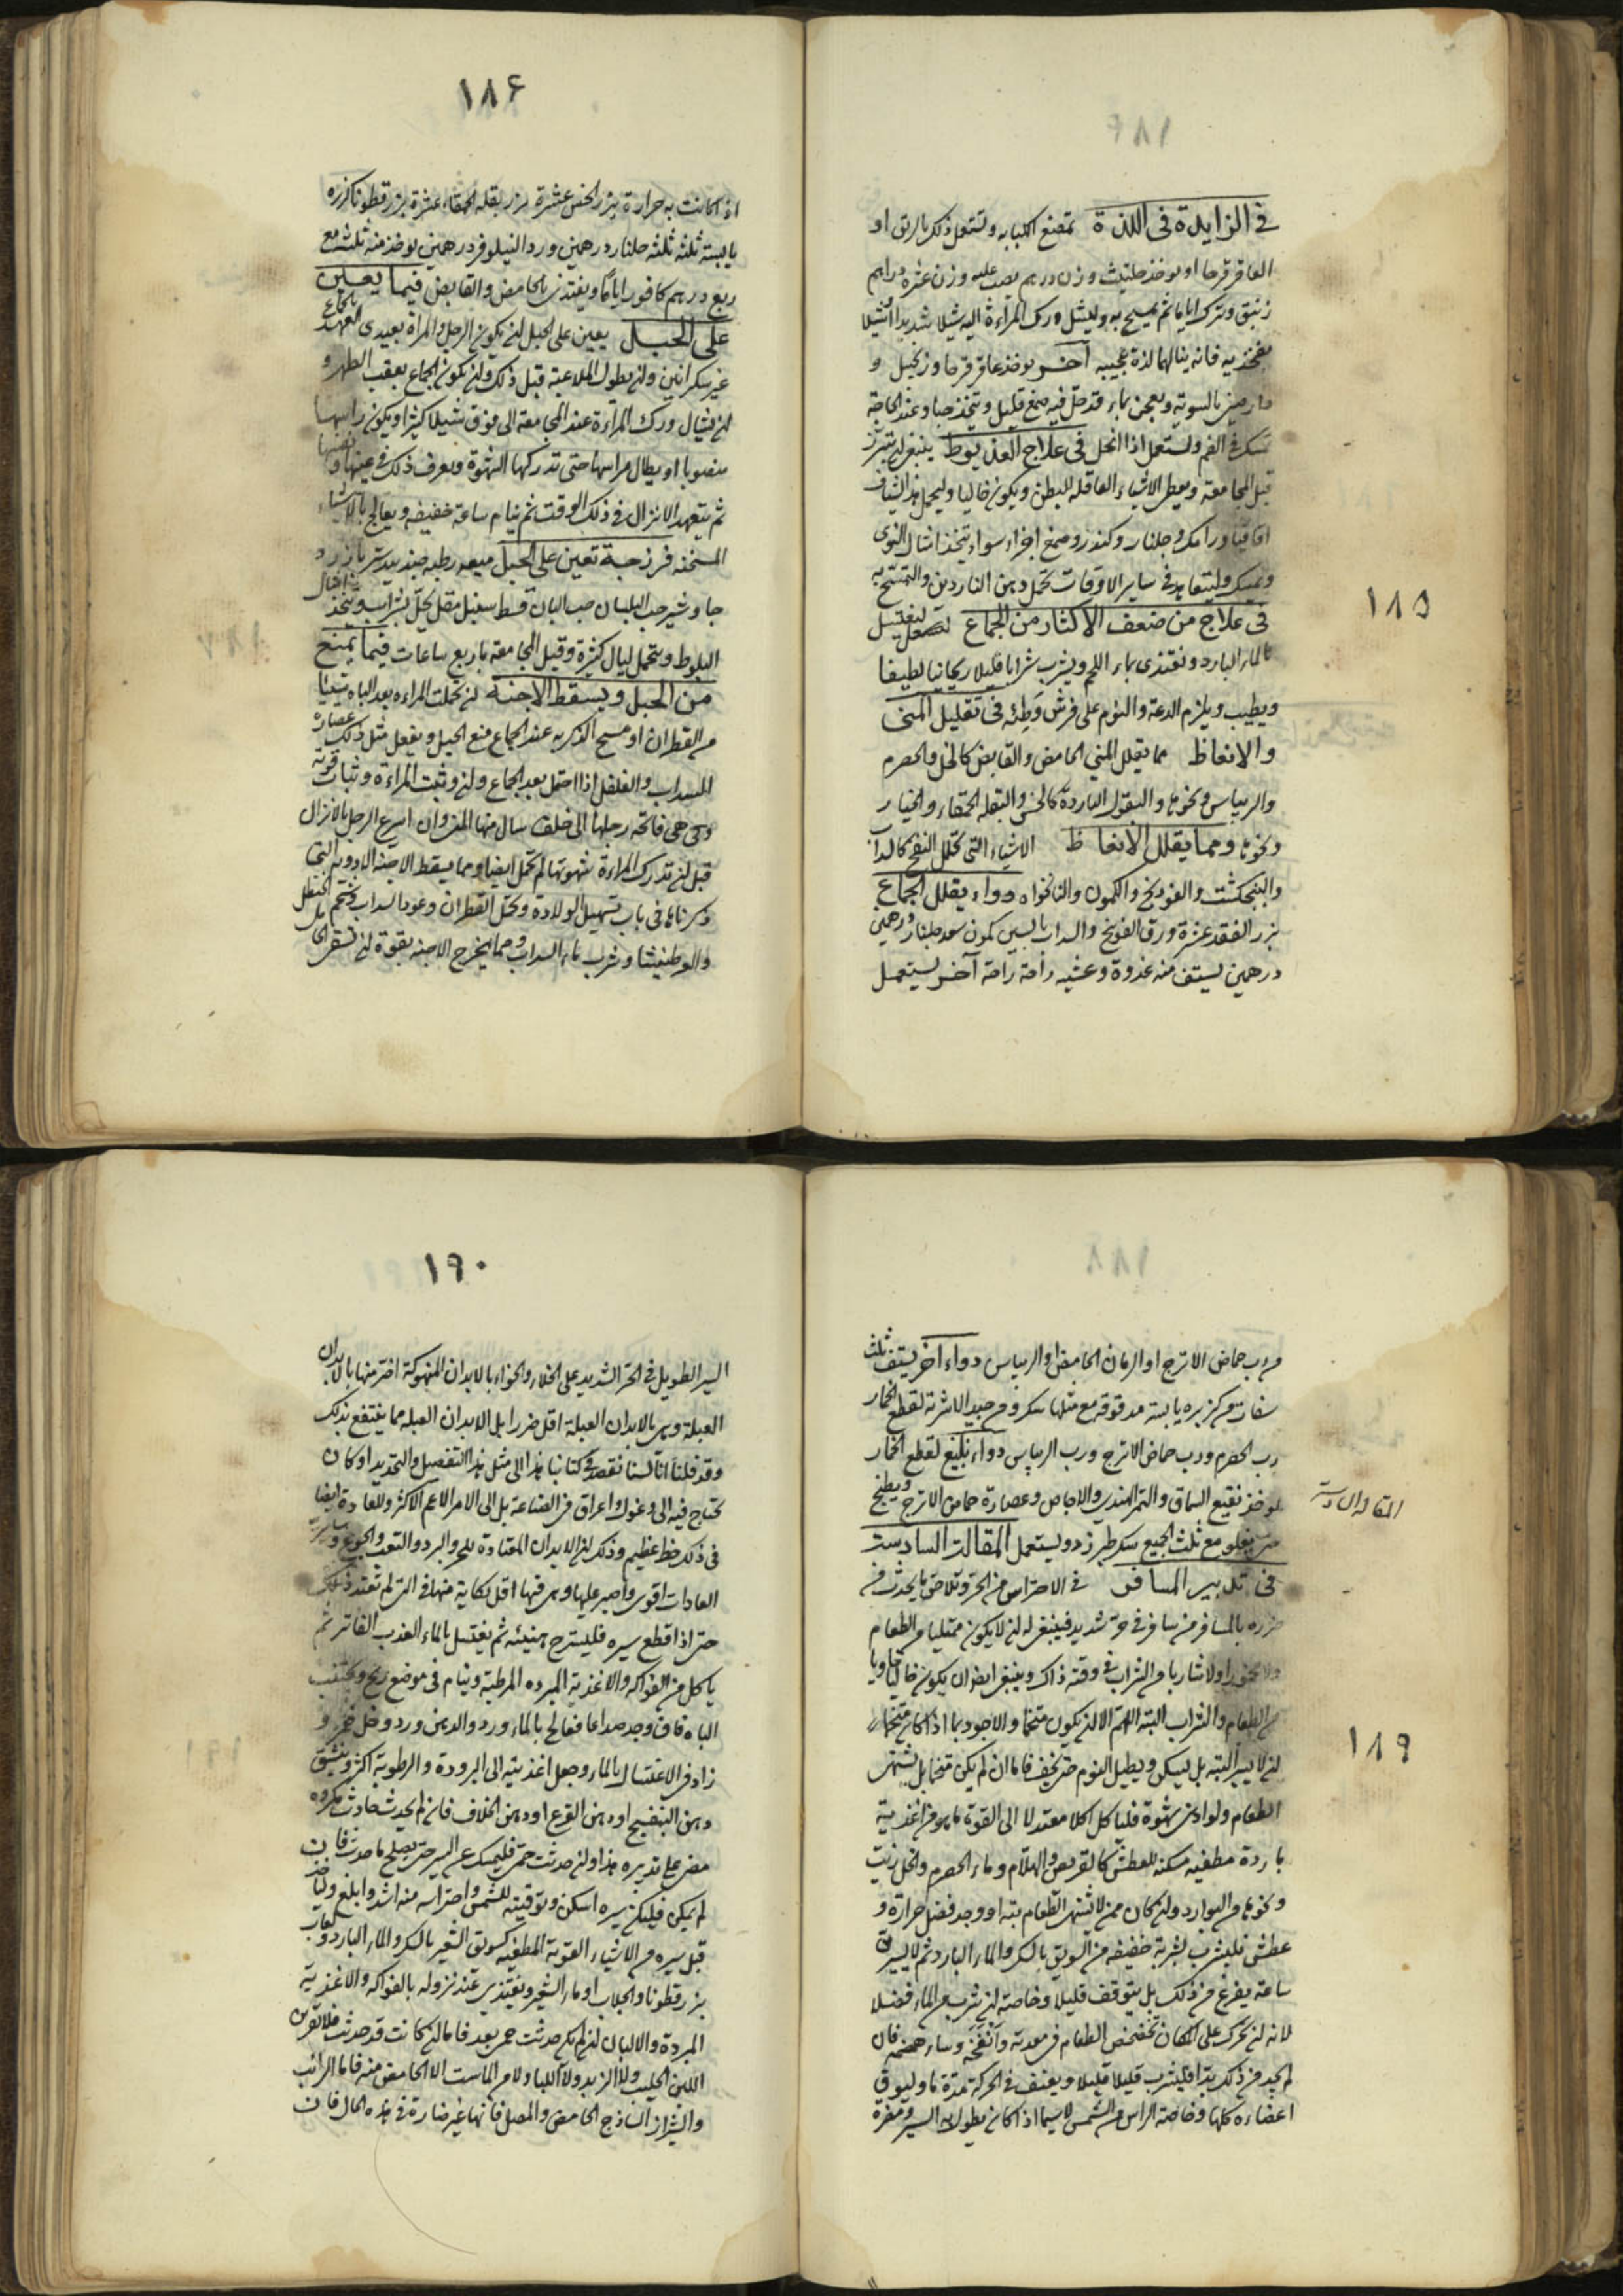 في الزايدة في اللذة تمضغ الكبابه وتستعمل ذلك بالريق او
العاقرقرحا او يوخذ حلتيث وزن درهم يصب عليه وزن عشرة دراهم
زنبق ويترك اياما ثم يمسح به وليشل ورك المراءة اليه شيلا شديدا
بفخذيه فانه ينالهما لذة عجيبه آخر يوخذ عاقرقرحا وزنجبيل و
دارصيني بالسوية ويعجن بماء قد حل فيه صمغ قليل ويتخذ حبا وعند الحاجة
تمسك في الفم وتستعمل اذا انحل في علاج العذيوط ينبغي ان يتبرز
قبل المجامعة ويعطى الاشياء العاقلة للبطن ويكون خاليا وليحمل هذا الشياف
اقاقيا ورامك وجلنار وكندر وصمغ اجزاء سواء يتخذ امثال النوى
ويمسك وليتعاهد في ساير الاوقات تحمل دهن الناردين والتمسح به
في علاج من ضعف الاكثار من الجماع ليغتسل
بالماء البارد ويغتذى بماء اللحم ويشرب شرابا قليلا ريحانيا لطيفا
ويطيب ويلزم الدعة والنوم على فرش وطئه في تقليل المنى
والانعاظ مما يقلل المني الحامض والقابض كالخل والحصرم
والريباس ونحوها والبقول الباردة كالخس والبقلة الحمقاء والخيار
ونحوها ومما يقلل الانعاظ الاشياء التي تحلل النفخ كالسداب
والبنجكشت والفودنج والكمون والنانخواه دواء يقلل الجماع
بزر الفقد عشرة ورق الفوذنج والسداب اليابسين كمون سعد جلنار درهمين
درهمين يستف منه غدوة وعشيه راحة راحة آخر يستعمل
١٨٥
١٨٦
اذا كانت به حرارة بزر الخس عشرة بزر بقلة الحمقاء عشرة بزر قطونا كزبره
يابسة ثلثه ثلثه جلنار درهمين ورد النيلوفر درهمين يوخذ منه ثلث مع
ربع درهم كافور اياما ويغتذى بالحامض والقابض فيما يعين
على الحبل يعين على الحبل ان يكون الرجل والمراة بعيدى العهد بالجماع
غير سكرانين وان يطول الملاعبة قبل ذلك وان يكون الجماع بعقب الطهر و
ان يشال ورك المراءة عند المجامعة الى فوق شيلا كثيرا ويكون راسها
منصوبا او يطال مراسها حتى تدركها الشهوة ويعرف ذلك في عينها ونفسها
ثم يتعهد الانزال في ذلك الوقت ثم ينام ساعة خفيفه ويعالج بالاشياء
المسخنه فرزجة تعين على الحبل ميعه رطبه جندبيدستر بازرد
جاوشير حب البلسان حب البان قسط سنبل مقل يحل بشراب ويتخذ امثال
البلوط ويتحمل ليال كثيرة وقبل المجامعة باربع ساعات فيما يمنع
من الحبل ويسقط الاجنة ان تحملت المراءه بعد الباه شيئا
من القطران او مسح الذكر به عند الجماع منع الحبل ويفعل مثل ذلك عصارة
السداب والفلفل اذا احتمل بعد الجماع وان وثبت المراءة وثبات قوية
وهى فاتحة رجلها الى خلف سال منها المنى وان اسرع الرجل بالانزال
قبل ان تدرك المراءة شهوتها لم تحمل ايضا ومما يسقط الاجنة الادوية التي
ذكرناها في باب تسهيل الولادة وتحمل القطران وعود السداب وشحم الحنظل
والعرطنيثا وشرب ماء السداب ومما يخرج الاجنة بقوة ان تسقى الحامل
من رب حماض الاترج او الرمان الحامض او الريباس دواء آخر يستف ثلث
سفات من كزبره يابسة مدقوقة مع مثلها سكر ومن جيد الاشربة لقطع الخمار
رب الحصرم ورب حماض الاترج ورب الريباس دواء بليغ لقطع الخمار
يوخذ نقيع السماق والتمر الهندي والاجاص وعصارة حماض الاترج ويطبخ
حتى يغلى مع ثلث الجميع سكر طبرزد ويستعمل المقالة السادسة
المقالة السادسة
في تدبير المسافر في الاحتراس من الحر وتلاحق ما يحدث من
ضرره بالمسافر من سافر في حر شديد فينبغي له ان لا يكون ممتليا من الطعام
ولا مخمورا ولا شاربا من الشراب في وقته ذاك وينبغي ايضا ان يكون خاليا خاويا
من الطعام والشراب البتة اللهم الا ان يكون متخما والاجود بما اذا كان متخما
ان لا يسير البتة بل يسكن ويطيل النوم حتى يخف فاما ان لم يكن متخما بل يشتهي
الطعام ولو ادنى شهوة فلياكل اكلا معتدلا الى القوة ما هو من اغذية
باردة مطفيه مسكنه للعطش كالقريص والهلام وماء الحصرم والخل زيت
ونحوها من البوارد وان كان ممن لا يشتهى الطعام بتة او وجد فضل حرارة و
عطش فليشرب شربة خفيفه من السويق بالسكر والماء البارد ثم لا يسير
ساعة يفرغ من ذلك بل يتوقف قليلا وخاصة ان شرب من الماء فضلا
لانه ان تحرك على المكان تخضخض الطعام في معدته وانفخه وساء هضمه فان
لم يجد من ذلك بتا فليشرب قليلا قليلا ويعنف في الحركة مدة ما وليوق
اعضاءه كلها وخاصة الراس من الشمس لا سيما اذا كان يطول به السير ومضرة
١٨٩
١٩٠
السير الطويل في الحر الشديد على الخلاء والخواء بالابدان المنهوكة اضر منها بالابدان
العبلة وهى بالابدان العبلة اقل ضررا بل الابدان العبلة مما ينتفع بذلك
وقد قلنا انا لسنا نقصد في كتابنا هذا الى مثل هذا التفصيل والتحديد او كان
يحتاج فيه الى وغول واعراق في الصناعة بل الى الامر الاعم الاكثر وللعادة ايضا
في ذلك حظ عظيم وذلك ان الابدان المعتادة للحر والبرد والتعب والجوع وسائر
العادات اقوى واصبر عليها وهى فيها اقل نكاية منها في التي لم تعتد ذلك
حتى اذا قطع سيره فليسترح هنيئه ثم يغتسل بالماء العذب الفاتر ثم
ياكل من الفواكه والاغذية المبرده المرطبة وينام في موضع ريح ويجتنب
الباه فان وجد صداعا فعالج بالماء ورد والدهن ورد وخل خمر و
زاد في الاغتسال بالماء وجعل اغذيته الى البرودة والرطوبة اكثر وينشق
دهن البنفسج او دهن القرع او دهن الخلاف فان لم يحدث حادث مكروه
مضى على تدبيره هذا وان حدثت حمى فليمسك عن السير حتى يصلح ما حدث فان
لم يمكن فليكن سيره اسكن وتوقيته للشمس واحتراسه منه اشد وابلغ ولياخذ
قبل سيره من الاشياء القوية المطفيه كسويق الشعير بالسكر والماء البارد ولعاب
بزرقطونا والجلاب او ماء الشعير ويغتذى عند نزوله بالفواكه والاغذية
المبردة والالبان ان لم يكن حدثت حمى بعد فاما ان كانت قد حدثت فلا تقربن
اللبن الحليب ولا الزبد ولا اللبا ولا من الماست الا الحامض منه فاما الرائب
والشيراز الساذج الحامض والمصل فانها غير ضارة في هذه الحال فان